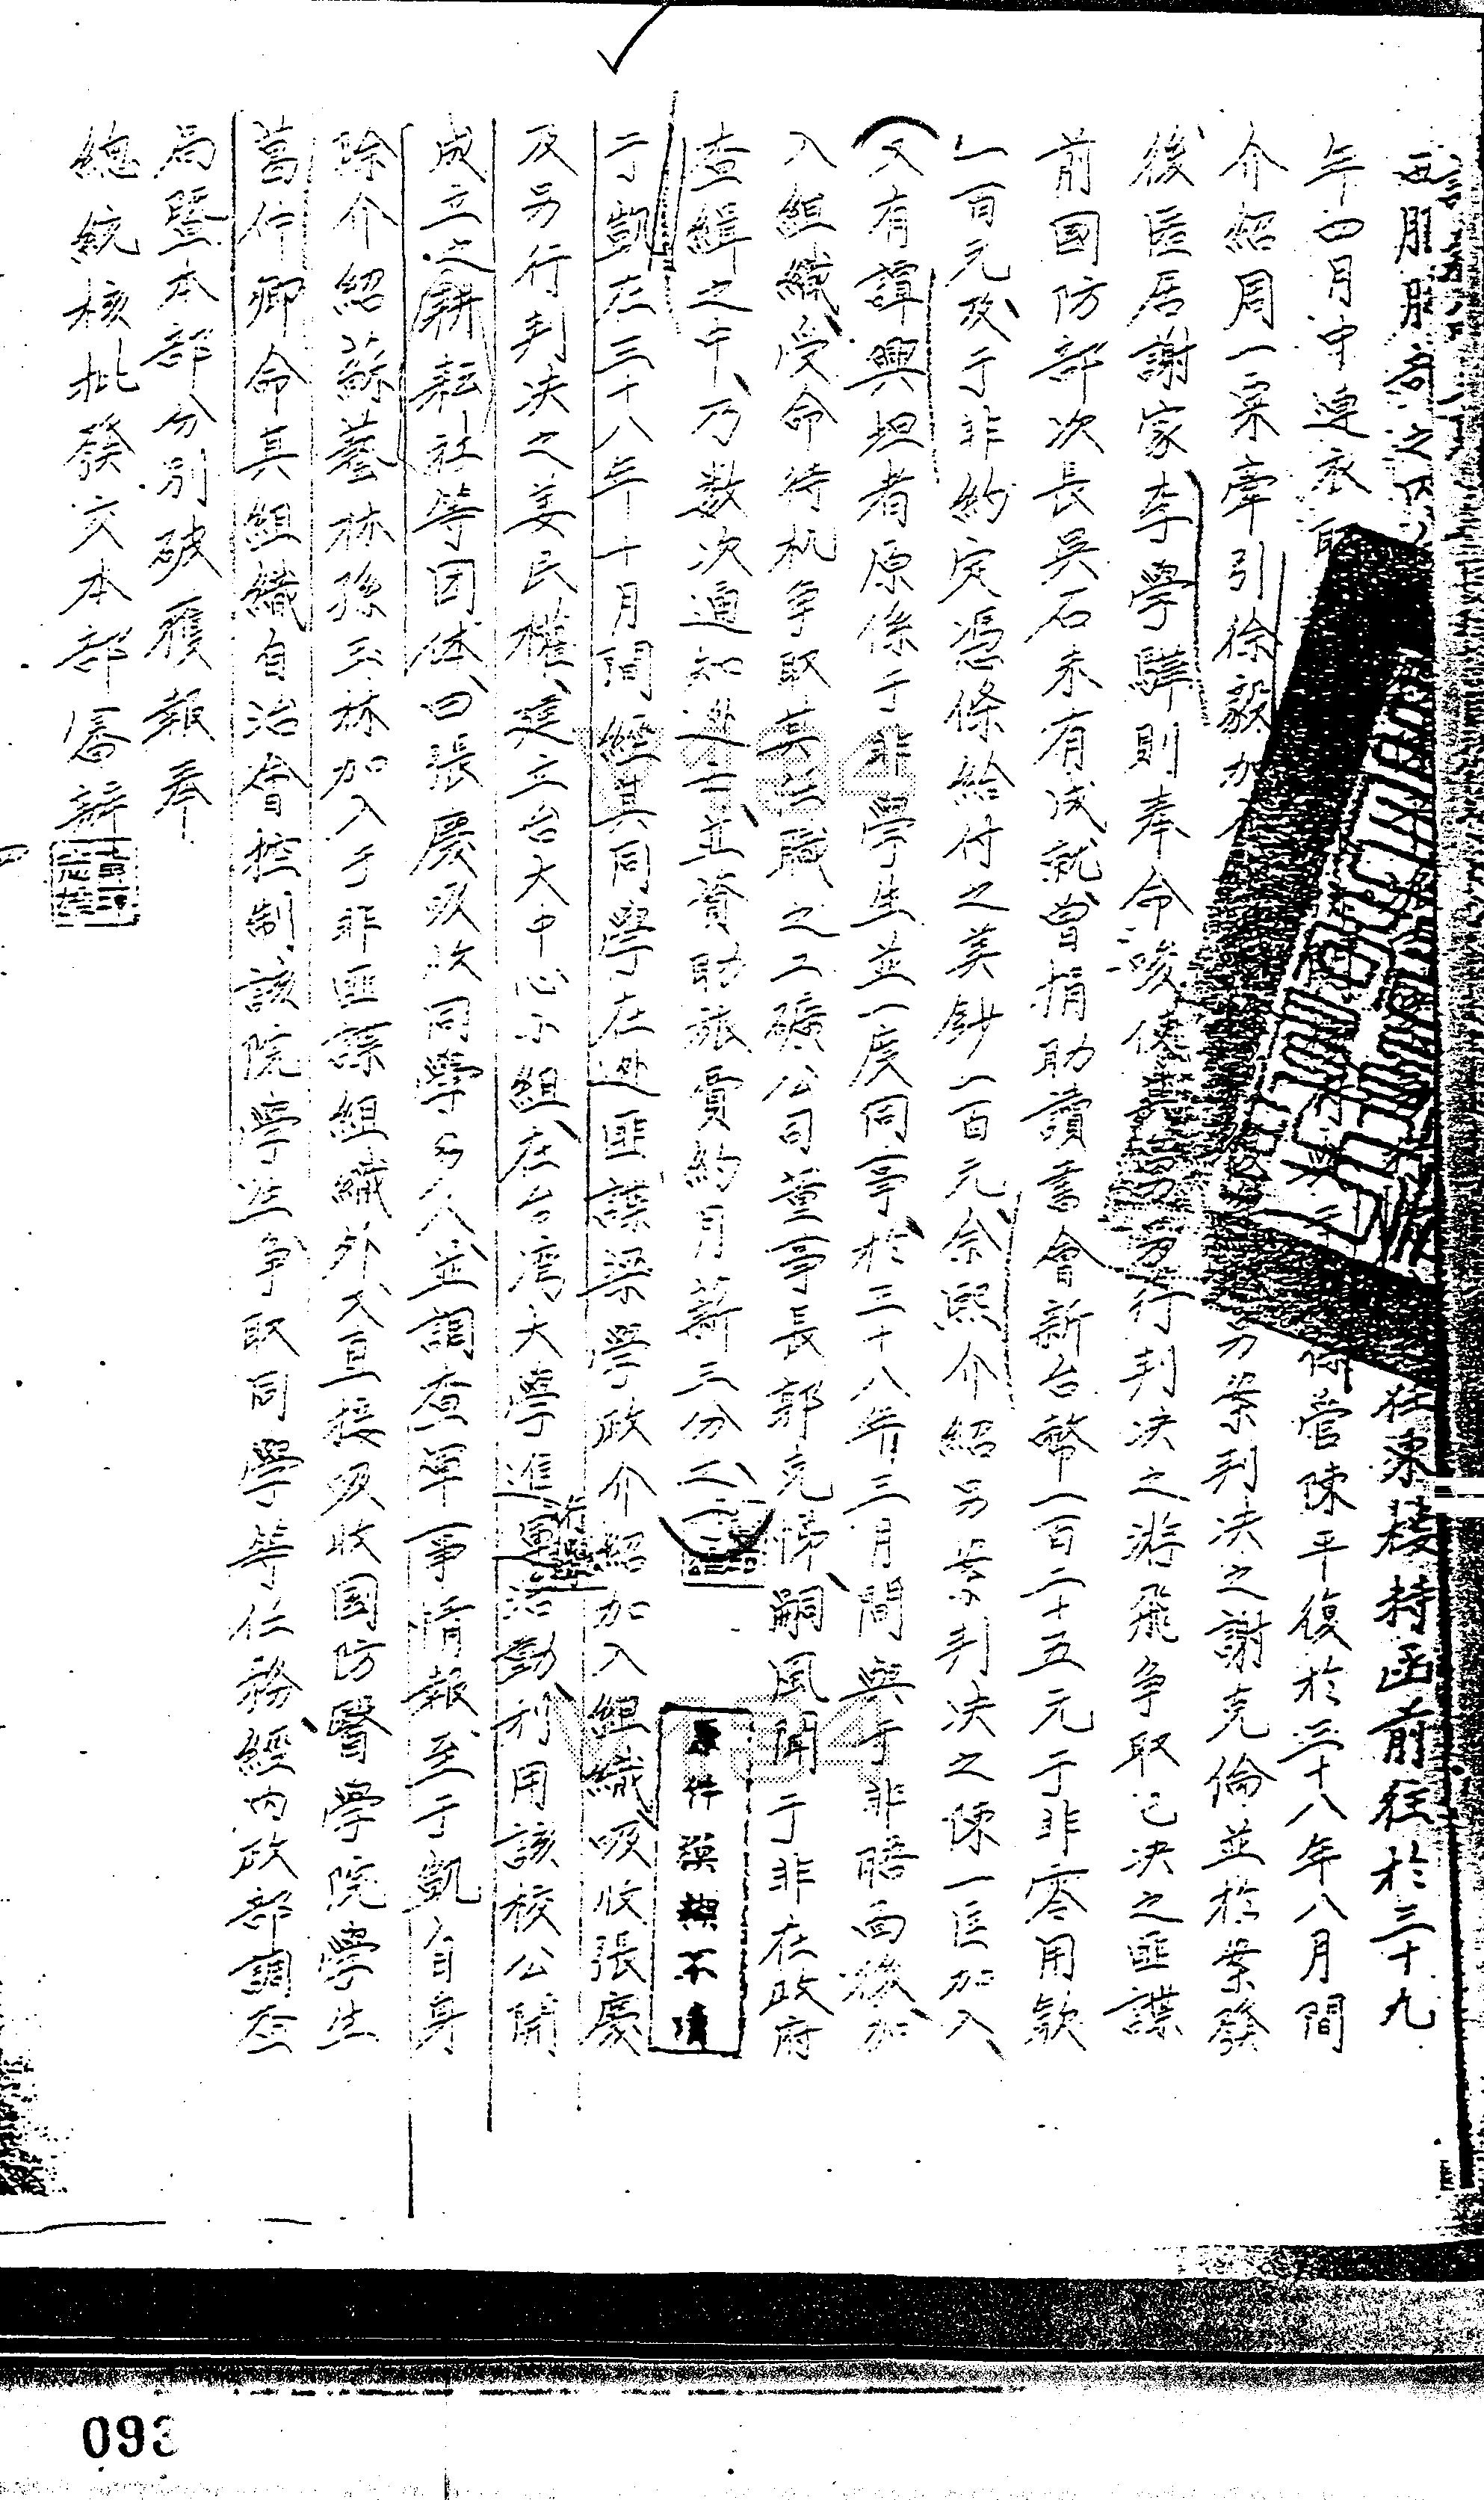 往東蔆持函前往於三十九
年四月中連衣
管陳平復於三十八年八月間
介紹周一粟牽引徐毅加
另案判決之謝克倫並於案發
後匿居謝家李學驊則奉命
另行判決之游飛爭取已決之匪諜
前國防部次長吳石未有成就曾捐助讀書會新台幣一百二十五元于非零用款
一百元及于非約定憑條給付之美鈔一百元佘熙介紹另案判決之陳一匡加入
又有譚興坦者原係于非學生並一度同事於三十八年三月間與于非晤面後加
入組織受命待机爭取其任職之工礦公司董事長郭克悌嗣風聞于非在政府
查緝之中乃数次通知逃亡並資助旅費約月薪三分二
于凱在三十八年十月間經其同學在逃匪諜梁學政介紹加入組織吸收張慶
及另行判決之姜民權建立台大中心小組在台湾大學進運活動利用該校公開
成立之耕耘社等团体曰張慶吸收同學多人並調查軍事情報至于凱自身
除介紹蘇藝林孫玉林加入于非匪諜組織外又直接吸收国防醫學院學生
葛仲卿命其組織自治會控制該院學生爭取同學等任務經內政部調查
局暨本部分別破獲報奉
總統核批發交本部審辦
原件模糊不清
V134
V134
093